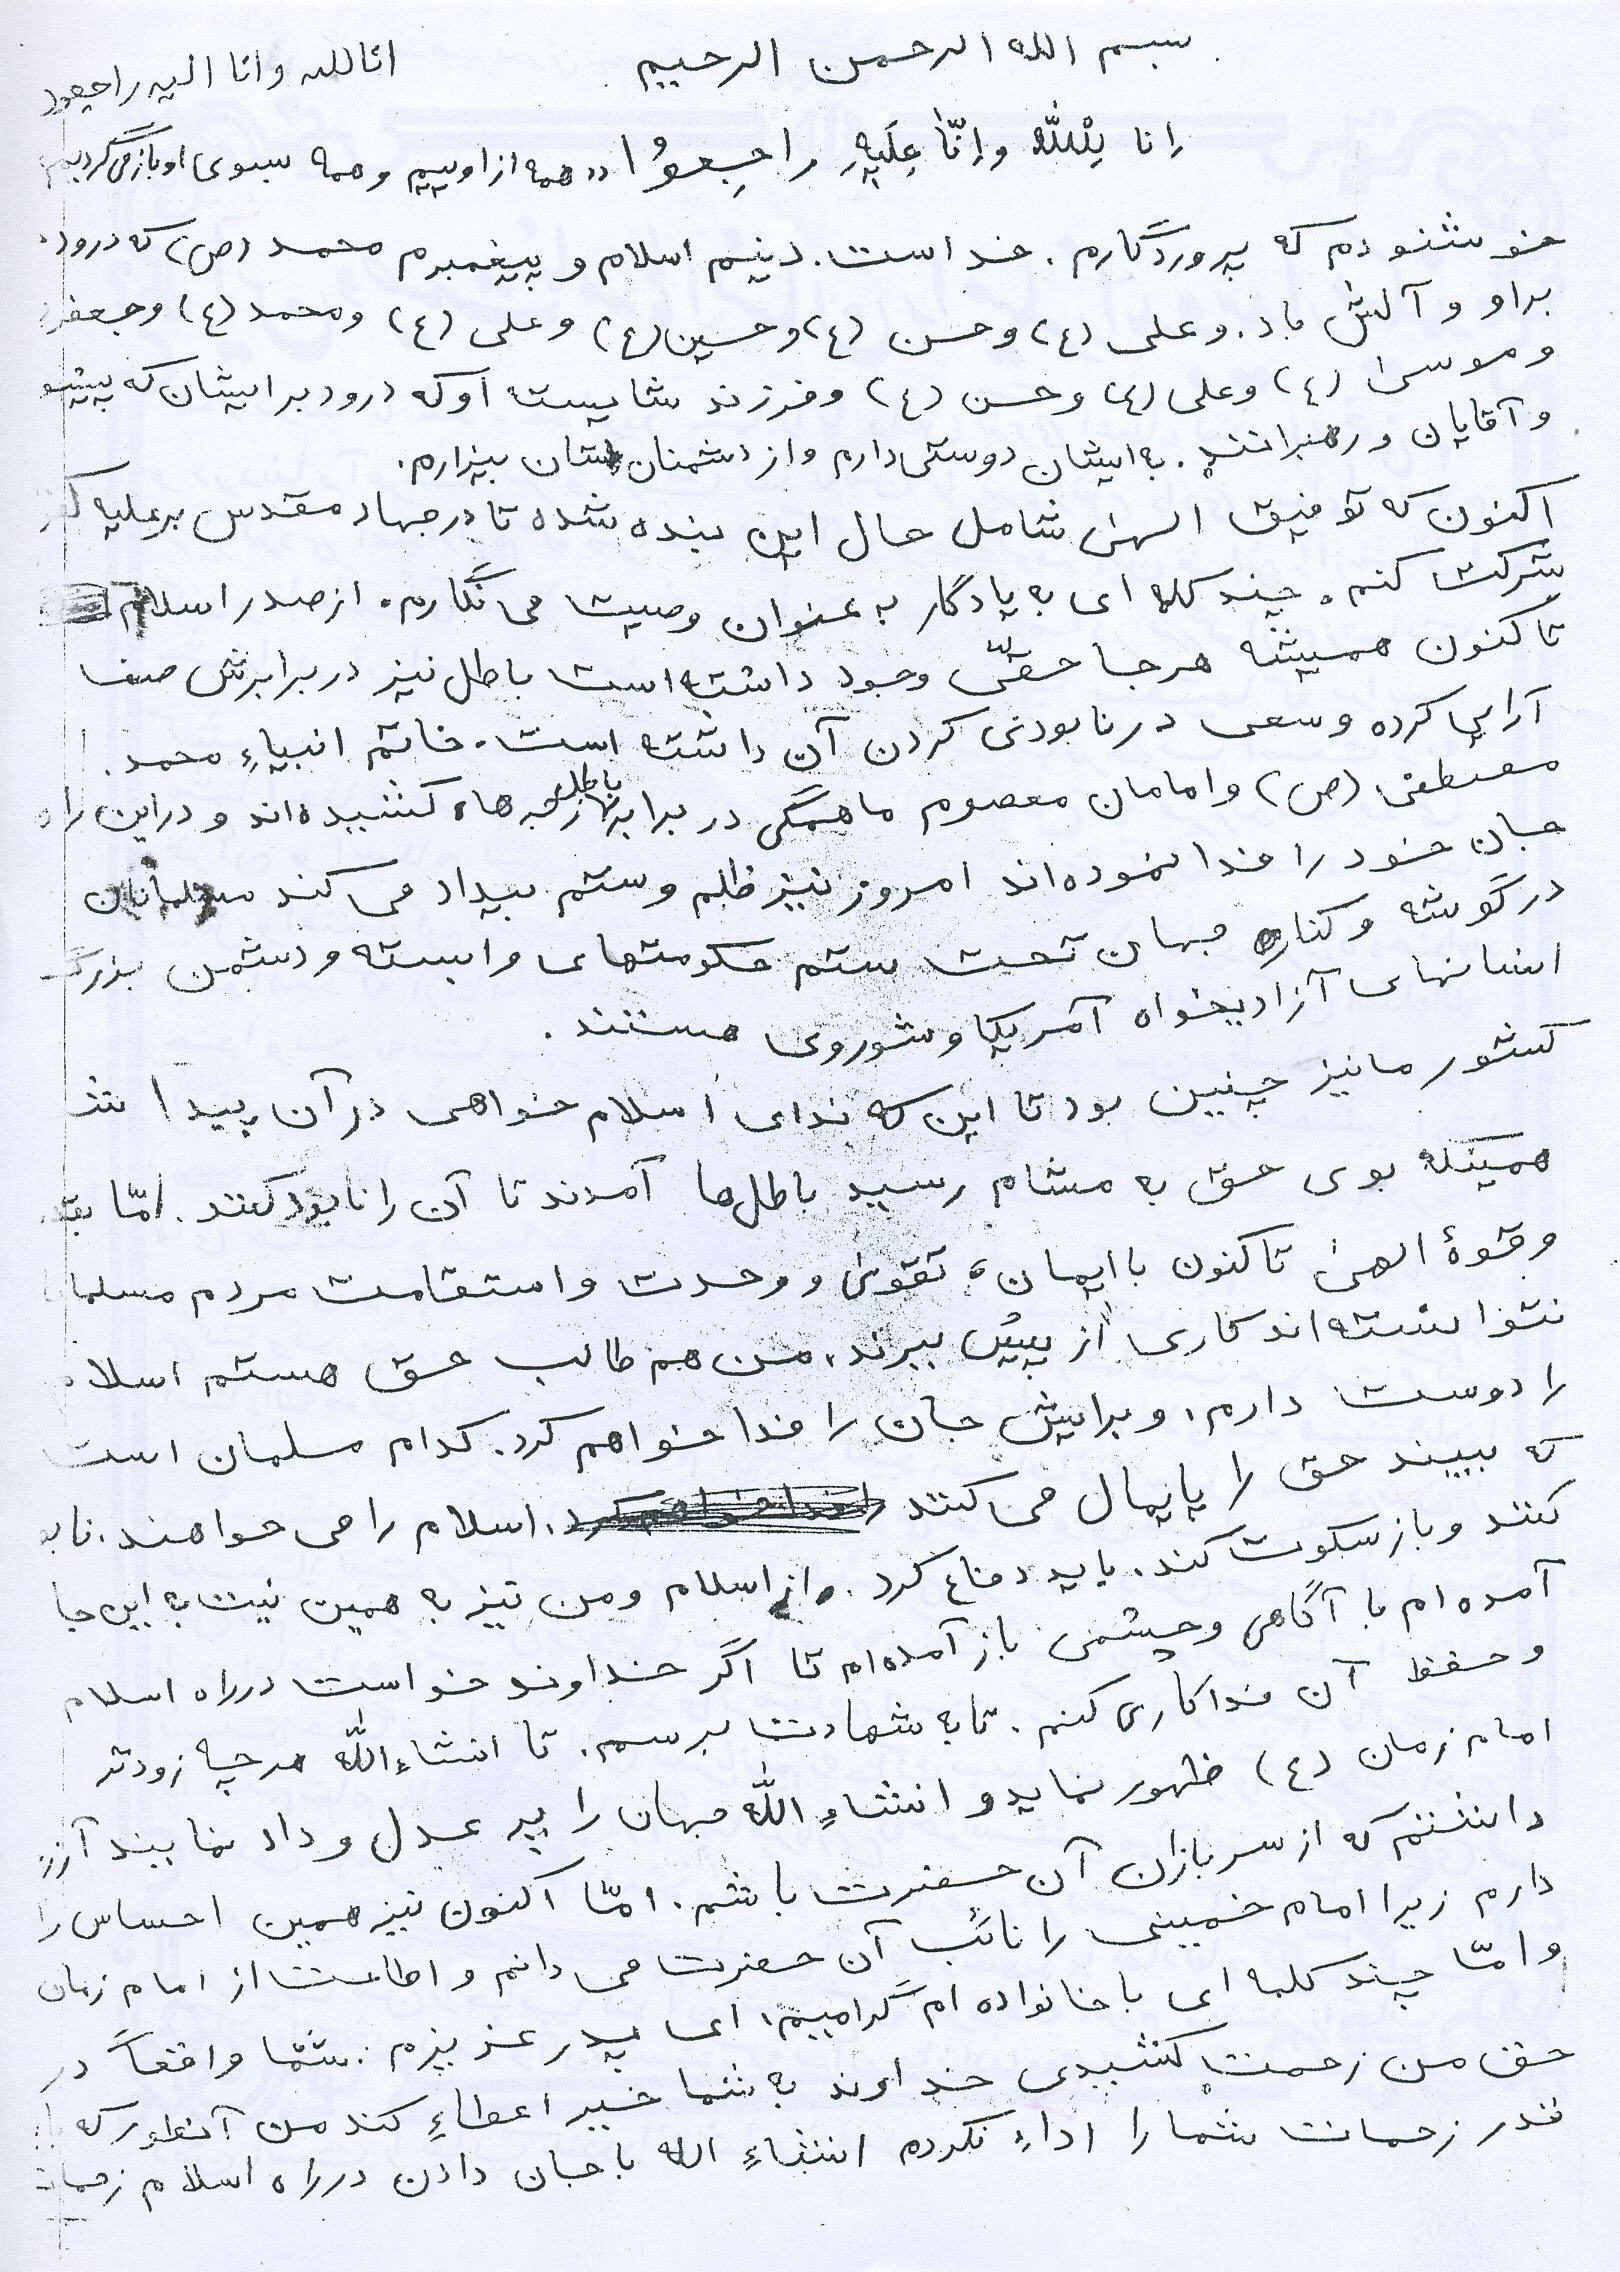 بسم الله الرحمن الرحیم
انالله وانا الیه راجعون
اِنا لِلّلهِ واِنّا عِلَیهِ راجِعوُا «همه از اوییم و همه بسوی او باز می گردیم
خوشنودم که پروردگارم. خداست. دینیم اسلام و پیغمبرم محمد (ص) که درود
براو و آلش باد. و علی (ع) وحسن (ع) وحسین (ع) وعلی (ع) ومحمد (ع) وجعفر
و موسیٰ (ع) وعلی (ع) وحسن (ع) وفرزند شایست اوکه درود برایشان که پیشو
و آقایان و رهبرانند. به ایشان دوستی دارم واز دشمنان شان بیزارم.
اکنون که توفیق الهی شامل حال این بنده شده تا در جهاد مقدس بر علیه کفر
شرکت کنم. چند کلمه ای به یادگار به عنوان وصیت می نگارم. از صدر اسلام
تاکنون همیشه هرجا حقّی وجود داشته است باطل نیز در برابرش صف
آرایی کرده وسعی در نابودی کردن آن داشته است. خاتم انبیاءِ محمد
مصطفی (ص) و امامان معصوم ما همگی در برابر باطل زجرها کشیده اند و دراین راه
جان خود را فدا نموده اند امروز نیز ظلم وستم بیداد می کند مسلمانان
در گوشه و کناره جهان تحت ستم حکومتهای وابسته و دشمن بزرگ
انسانهای آزادیخواه آمریکا و شوروی هستند.
کشور مانیز چنین بود تا این که ندای اسلام خواهی در آن پیدا شد
همینکه بوی حق به مشام رسید باطل‌ها آمدند تا آن را نابود کنند. امّا بتو
و قوهٔ الهیٰ تاکنون با ایمان، تقوی و وحدت واستقامت مردم مسلما
نتوانسته اند کاری از پیش ببرند. من هم طالب حق هستم اسلام
را دوست دارم، و برایش جان را فدا خواهم کرد. کدام مسلمان است
که ببیند حق را پایمال می کنند را فدا خواهم کرد. اسلام را می خواهند. نابو
کنند و باز سکوت کند. باید دفاع کرد. از اسلام ومن نیز به همین نیت به این جا
آمده ام با آگاهی وچشمی باز آمده ام تا اگر خداوند خواست درراه اسلام
و حفظ آن فداکاری کنم. تا به شهادت برسم. تا انشاءالله هر چه زودتر
امام زمان (ع) ظهور نماید و انشاءِ الله جهان را پر عدل و داد نمایند آرزو
داشتم که از سربازان آن حضرت باشم. امّا اکنون نیز همین احساس را
دارم زیرا امام خمینی را نائب آن حضرت می دانم و اطاعت از امام زمان
و امّا چند کلمه ای با خانواده ام گرامییم، ای پدر عزیزم. شما واقعاً در
حق من زحمت کشیدی خداوند به شما خیر اعطاءِ کند من آنطور که
قدر زحمات شما را اداءِ نکردم انشاءِ الله با جان دادن درراه اسلام زحمات